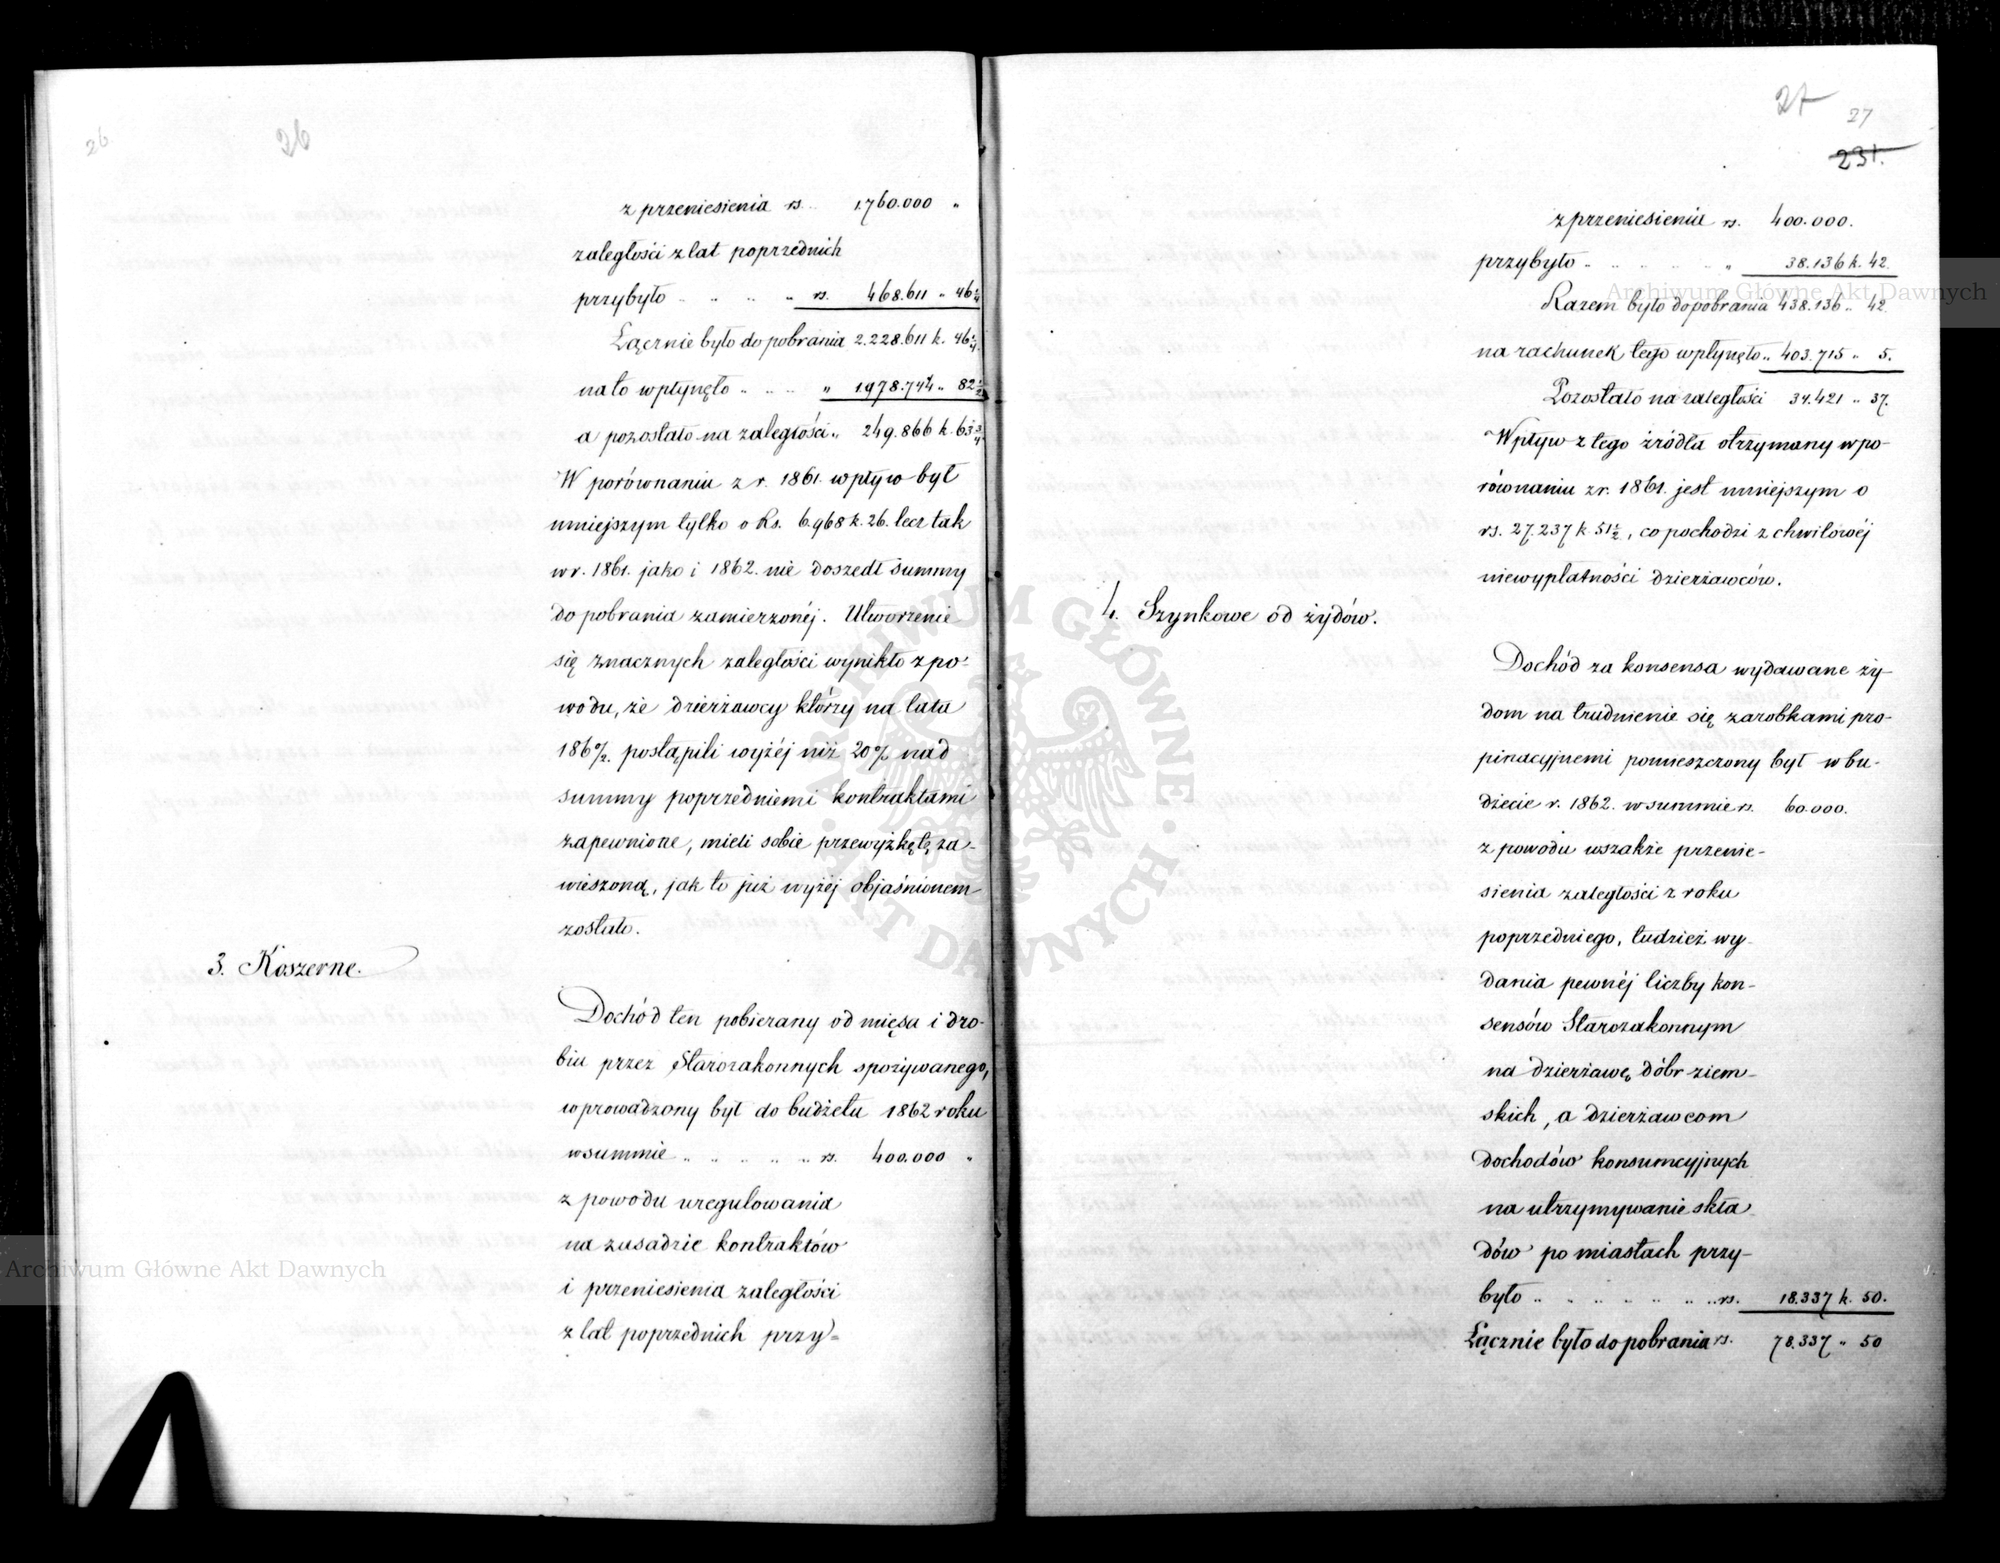 26
26
z przeniesienia rs. 1.760.000 "
zaległości z lat poprzednich
przybyło " " " " rs. 468.611 " 46 1/4
Łącznie było do pobrania 2.228.611 k. 46 1/4.
na to wpłynęło " " " " 1.978.744 " 82 1/2
a pozostało na zaległości " 249.866 k. 63 3/4
W porównaniu z r. 1861. wpływ był
mniejszym tylko o Rs. 6.968 k. 26. lecz tak
w r. 1861. jako i 1862. nie doszedł summy
do pobrania zamierzonéj. Utworzenie
się znacznych zaległości wynikło z po-
wodu, że dzierżawcy którzy na lata
186 0/2. postąpili wyżéj niż 20% nad
summy poprzedniemi kontraktami
zapewnione, mieli sobie przewyżkę tę za-
wieszoną, jak to już wyżéj objaśnionem
zostało.
3. Koszerne.
Dochód ten pobierany od mięsa i dro-
biu przez Starozakonnych spożywanego,
wprowadzony był do budżetu 1862 roku
w summie " " " " " rs. 400.000 "
z powodu uregulowania
na zasadzie kontraktów
i przeniesienia zaległości
z lat poprzednich przy=
27
27
231.
z przeniesienia rs. 400.000.
przybyło " " " " " " 38.136 k. 42.
Razem było do pobrania 438.136 " 42.
na rachunek tego wpłynęło " 403.715 " 5.
Pozostało na zaległości 34.421 " 37.
Wpływ z tego źródła otrzymany w po-
równaniu z r. 1861. jest mniejszym o
rs. 27.237 k. 51 1/2, co pochodzi z chwilowéj
niewypłatności dzierżawców.
4. Szynkowe od żydów.
Dochód za konsensa wydawane ży-
dom na trudnienie się zarobkami pro-
pinacyjnemi pomieszczony był w bu-
dżecie r. 1862. w summie rs. 60.000.
z powodu wszakże przenie-
sienia zaległości z roku
poprzedniego, tudzież wy-
dania pewnéj liczby kon-
sensów Starozakonnym
na dzierżawę dóbr ziem-
skich, a dzierżawcom
dochodów konsumcyjnych
na utrzymywanie skła-
dów po miastach przy-
było " " " " " " " rs. 18.337 k. 50.
Łącznie było do pobrania rs. 78.337 " 50
Archiwum Główne Akt Dawnych
Archiwum Główne Akt Dawnych
ARCHIWUM GŁÓWNE AKT DAWNYCH